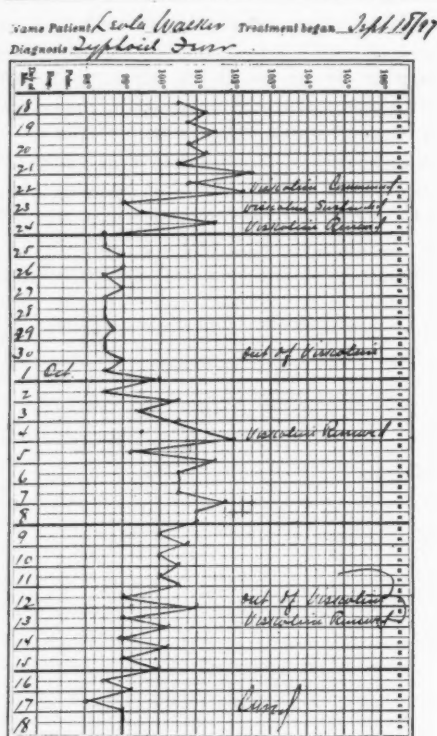 Name Patient Lsola Walker Treatment began Sept 18/07
Diagnosis Typhoid Fever
98° 99° 100° 101° 102° 103° 104° 105° 106°
18
19
20
21
22 Viskoline Commenced
23 Viskoline Suspended
24 Viskoline Renewed
25
26
27
28
29
30 out of Viskoline
1 Oct.
2
3
4 Viskoline Renewed
5
6
7
8
9
10
11
12 out of Viskoline
13 Viskoline Renewed
14
15
16
17 Cured
18